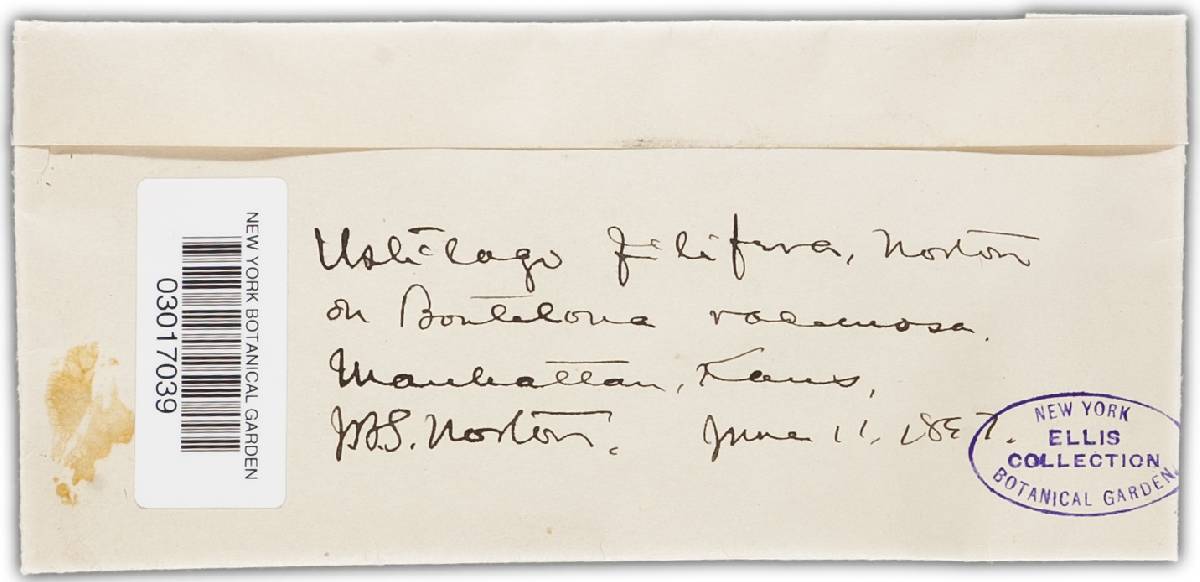 Ustilago filifera, Norton
on Bouteloua racemosa.
Manhattan, Kans,
J.B.S. Norton. June 11, 1897.
NEW YORK BOTANICAL GARDEN
03017039
NEW YORK
ELLIS
COLLECTION
BOTANICAL GARDEN.